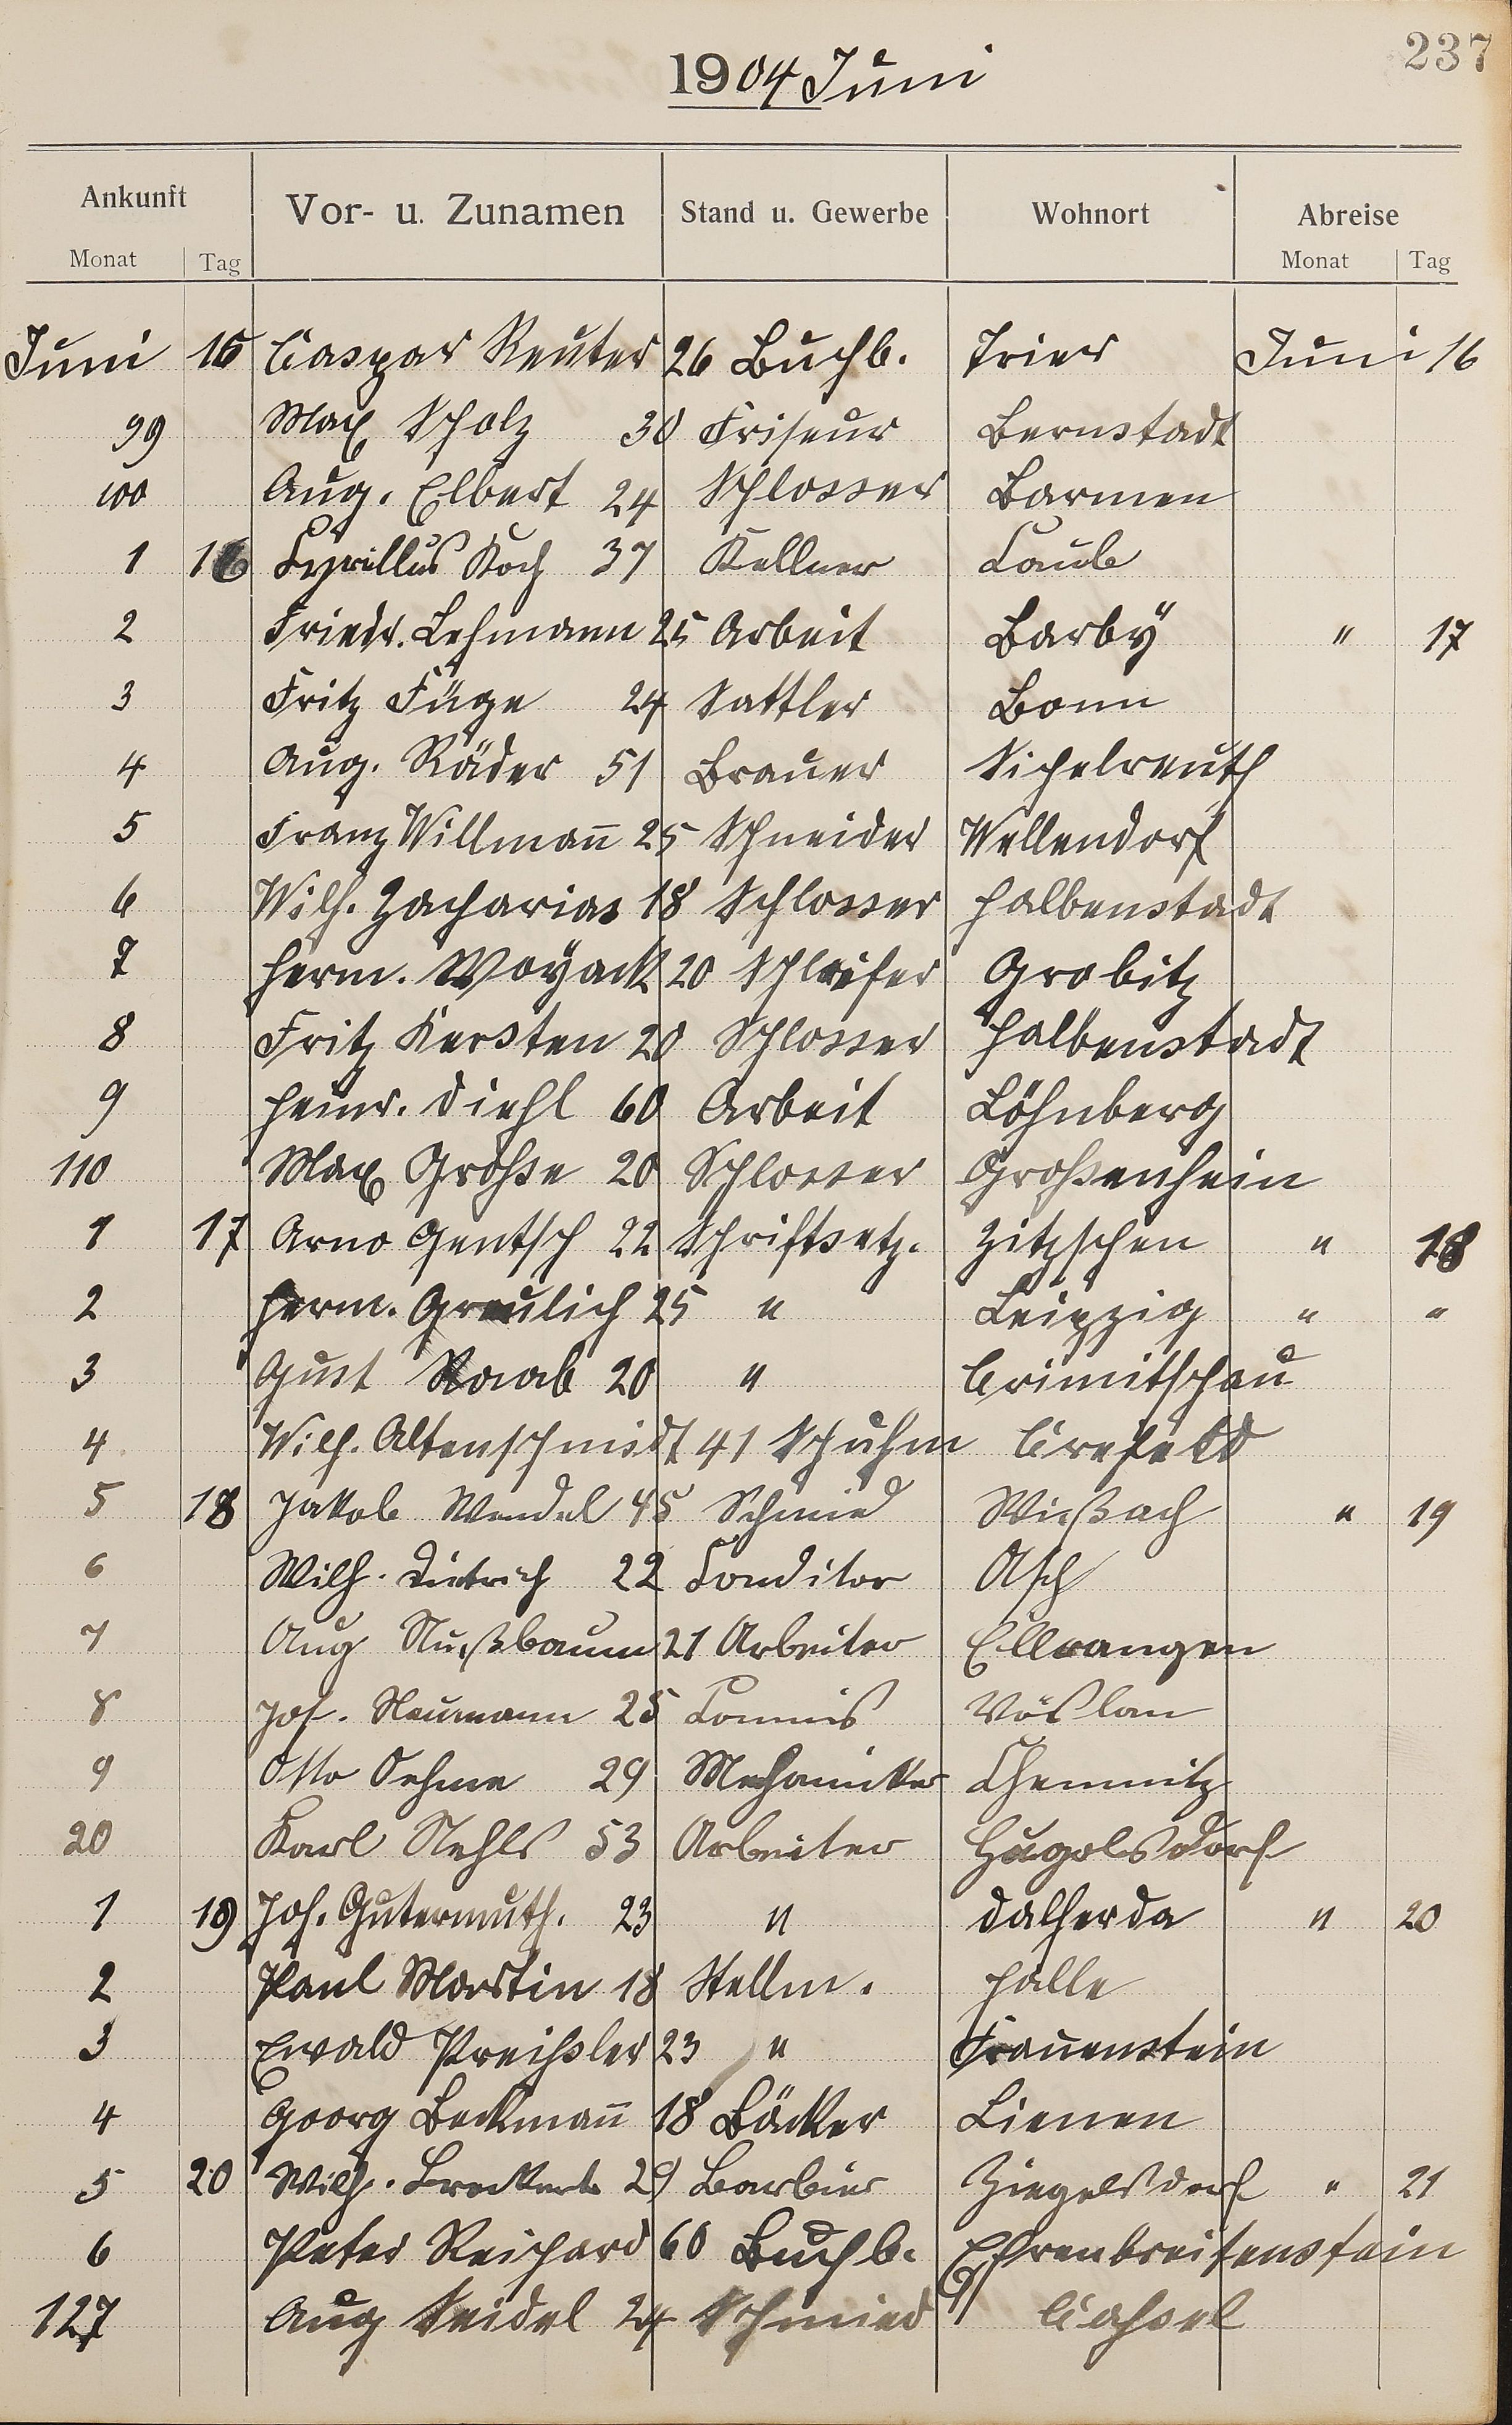 237
1904 Juni
Ankunft Vor- u. Zunamen Stand u. Gewerbe Wohnort Abreise
Monat Tag Monat Tag
Juni 15 Caspar Reuter 26 Buchb. Trier Juni 16
99 Max Scholz 30 Friseur Bernstadt
100 Aug. Elbert 24 Schlosser Barmen
1 16 Cyrillus Koch 37 Kellner Caub
2 Friedr. Lehmann 25 Arbeit Barby " 17
3 Fritz Füge 24 Sattler Bonn
4 Aug. Räder 51 Brauer Sichelreuth
5 Franz Willmañ 25 Schneider Wellendorf
6 Wilh. Zacharias 18 Schlosser Halbenstadt
7 Herm. Woyack 20 Schleifer Grobitz
8 Fritz Kersten 20 Schlosser Halbenstadt
9 Heinr. Diehl 60 Arbeit Löhnberg
110 Max Große 20 Schlosser Großenhein
1 17 Arno Gentsch 22 Schriftsetz. Zitzschen " 18
2 Herm. Greulich 25 " Leipzig " "
3 Gust Raab 20 " Crimitschau
4 Wilh. Altenschmidt 41 Schuhm Crefeld
5 18 Jakob Wendel 45 Schmied Wießach " 19
6 Wilh. Dietrich 22 Conditor Asch
7 Aug Nußbaum 21 Arbeiter Ellwangen
8 Jos. Neumann 25 Commis Vöslau
9 Otto Oehme 29 Mechaniker Chemnitz
20 Karl Nehls 53 Arbeiter Hugolsdorf
1 19 Joh. Gutermuth. 23 " Dalherda " 20
2 Paul Martin 18 Stellm. Halle
3 Ewald Preißler 23 " Frauenstein
4 Georg Beckmañ 18 Bäcker Lienen
5 20 Wilh. 29 Barbier Ziegelsdorf " 21
6 Peter Reichard 60 Buchb. Ehrenbreitenstein
127 Aug Seidel 24 Schmied Cassel